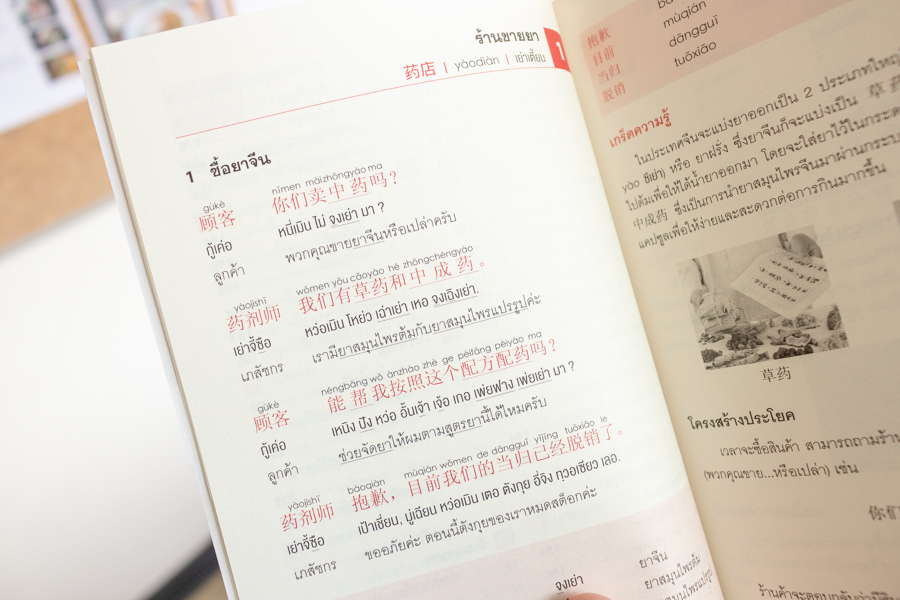 ร้านขายยา
药店 | yàodiàn | เย่าเตี้ยน
1
1 ซื้อยาจีน
gùkè
顾客
กู้เค่อ
ลูกค้า
nǐmen mài zhōngyào ma
你们卖中药吗？
หนี่เมิน ไม่ จงเย่า มา ?
พวกคุณขายยาจีนหรือเปล่าครับ
yàojìshī
药剂师
เย่าจี้ซือ
เภสัชกร
wǒmen yǒu cǎoyào hé zhōngchéngyào
我们有草药和中成药。
หว่อเมิน โหย่ว เฉ่าเย่า เหอ จงเฉิงเย่า.
เรามียาสมุนไพรต้มกับยาสมุนไพรแปรรูปค่ะ
gùkè
顾客
กู้เค่อ
ลูกค้า
néngbāng wǒ ànzhào zhè ge pèifāng pèiyào ma
能帮我按照这个配方配药吗？
เหนิง ปัง หว่อ อั้นเจ้า เจ้อ เกอ เพ่ยฟาง เพ่ยเย่า มา ?
ช่วยจัดยาให้ผมตามสูตรยานี้ได้ไหมครับ
yàojìshī
药剂师
เย่าจี้ซือ
เภสัชกร
bàoqiàn mùqián wǒmen de dāngguī yǐjīng tuōxiāo le
抱歉，目前我们的当归已经脱销了。
เป้าเชี่ยน, มู่เฉียน หว่อเมิน เตอ ตังกุย อี่จิง ทัวเซียว เลอ.
ขออภัยค่ะ ตอนนี้ตังกุยของเราหมดสต็อกค่ะ
จงเย่า
ยาจีน
ยาสมุนไพรต้ม
抱歉
目前 mùqián
当归 dāngguī
脱销 tuōxiāo
เกร็ดความรู้
ในประเทศจีนจะแบ่งยาออกเป็น 2 ประเภทใหญ่
ยาฝรั่ง ซึ่งยาจีนก็จะแบ่งเป็น 草药
ไปต้มเพื่อให้ได้น้ำยาออกมา โดยจะใส่ยาไว้ใน
中成药 ซึ่งเป็นการนำยาสมุนไพรจีนมาผ่าน
แคปซูลเพื่อให้ง่ายและสะดวกต่อการกินมากขึ้น
草药
โครงสร้างประโยค
เวลาจะซื้อสินค้า สามารถถามร้าน
(พวกคุณขาย...หรือเปล่า) เช่น
你们